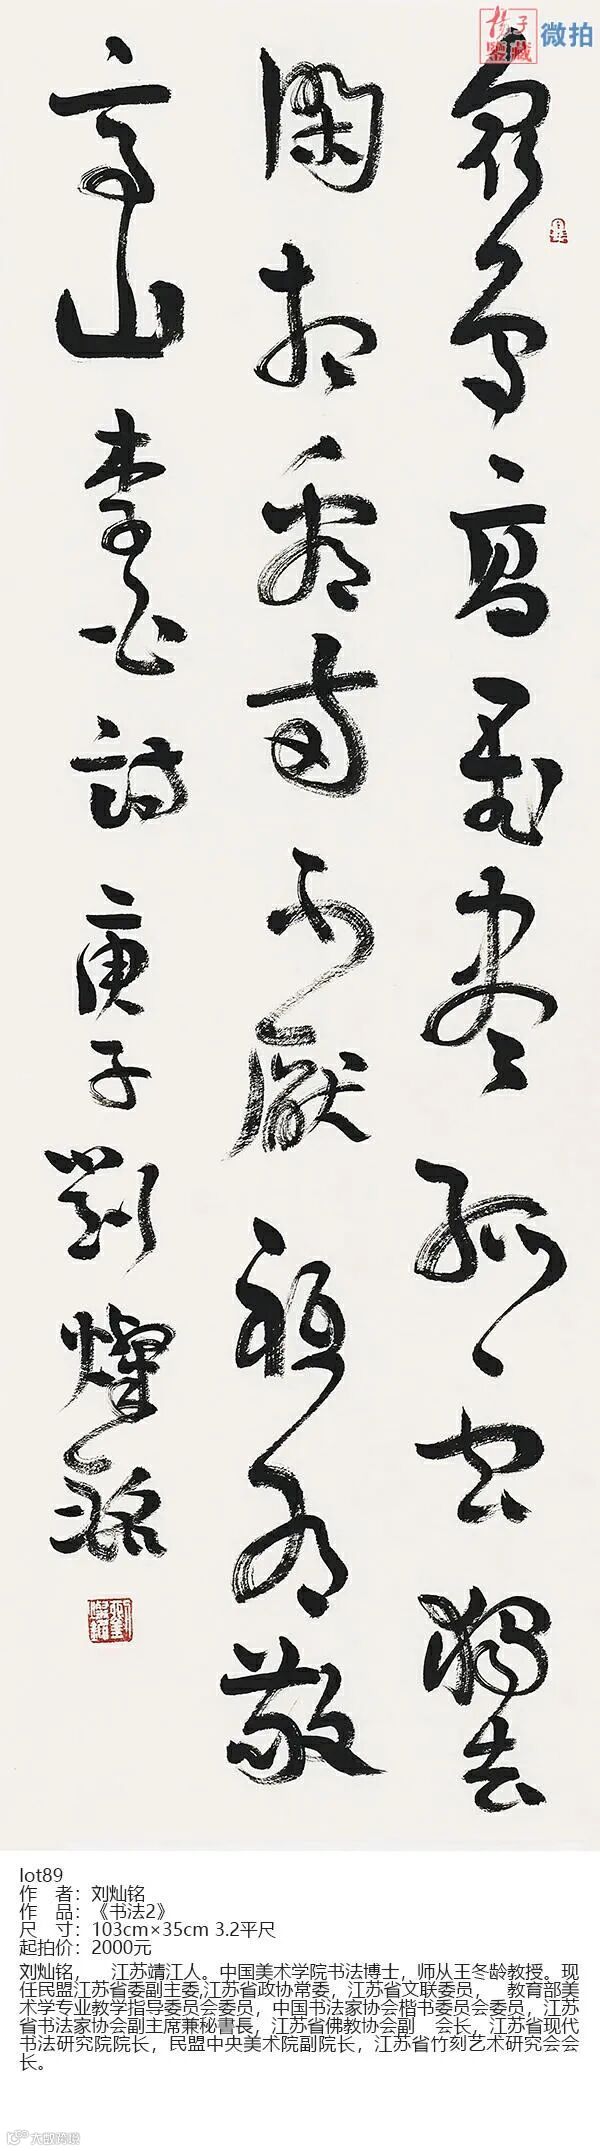 揚子鑒藏 微拍
眾鳥高飛盡孤雲獨去
閑相看兩不厭祗有敬
亭山 李白詩 庚子 劉燦銘
lot89
作 者：刘灿铭
作 品：《书法2》
尺 寸：103cm×35cm 3.2平尺
起拍价：2000元
刘灿铭， 江苏靖江人。中国美术学院书法博士，师从王冬龄教授。现
任民盟江苏省委副主委,江苏省政协常委，江苏省文联委员， 教育部美
术学专业教学指导委员会委员，中国书法家协会楷书委员会委员，江苏
省书法家协会副主席兼秘書長，江苏省佛教协会副 会长，江苏省现代
书法研究院院长，民盟中央美术院副院长，江苏省竹刻艺术研究会会
长。
大数跨境